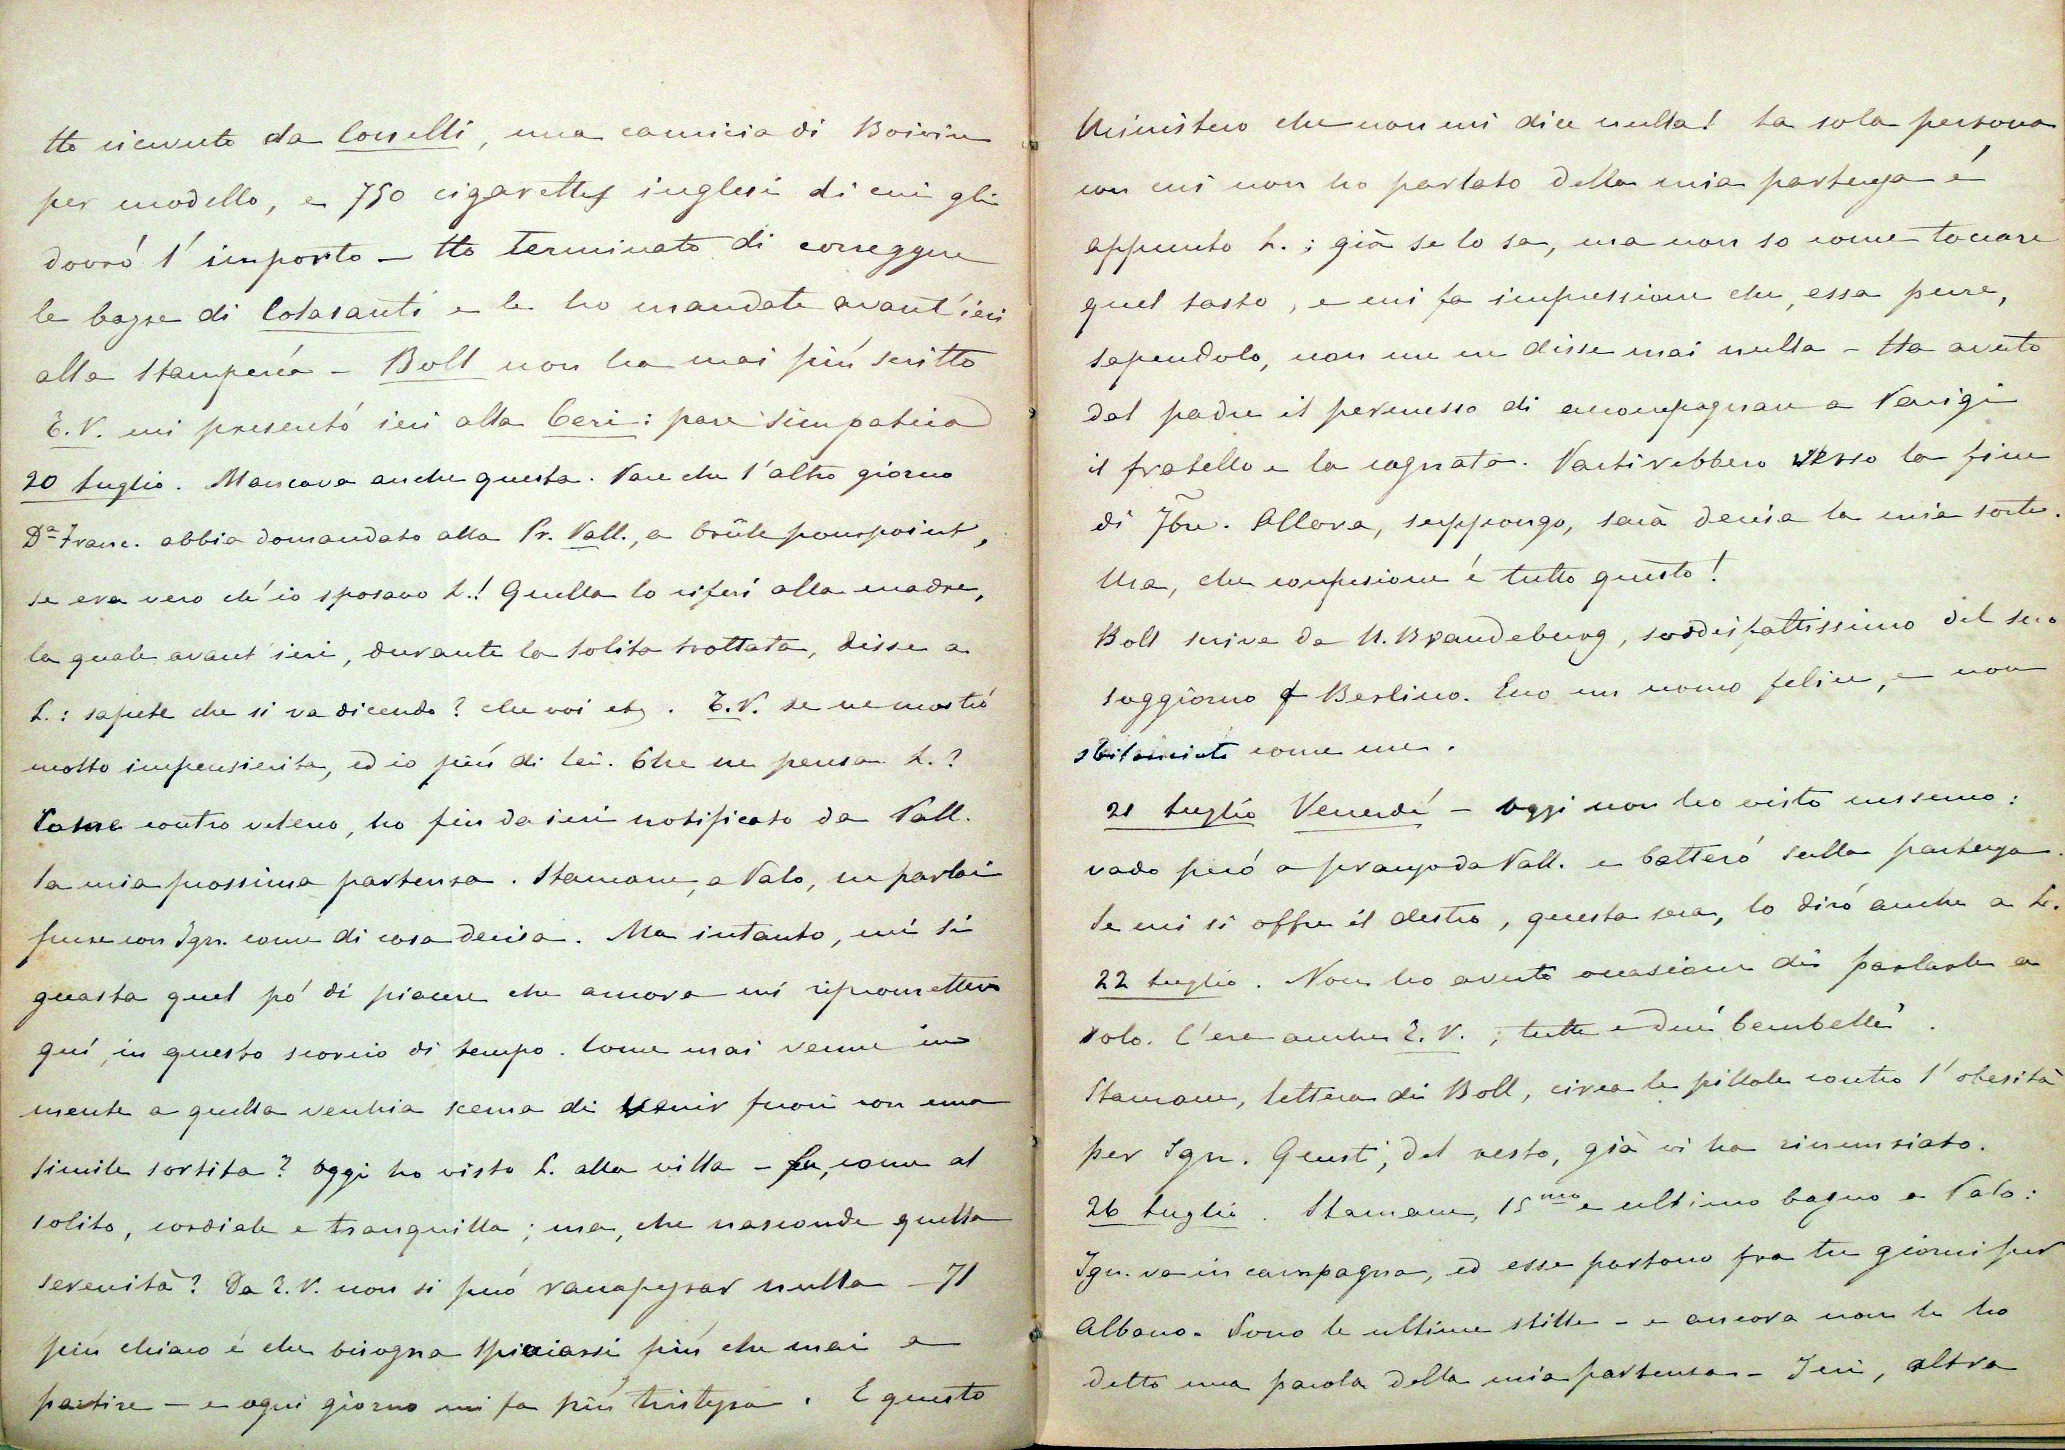 Ho ricevuto da Corselli, una camicia di Boivin
per modello, e 750 cigarettes inglesi di cui gli
dovró l'importo – Ho terminato di correggere
le bozze di Colasanti e le ho mandate avant'ieri
alla Stamperia – Boll non ha mai piú scritto
E. V. mi presentó ieri alla Ceri: pare simpatica
20 Luglio. Mancava anche questa. Pare che l'altro giorno
Da Franc. abbia domandato alla Pr. Pall., a brûle pourpoint,
se era vero ch'io sposavo L.! Quella lo riferí alla madre,
la quale avant'ieri, durante la solita trottata, disse a
L.: sapete che si va dicendo? che voi etc. E. V. se ne mostró
molto impensierita, ed io piú di lei. Che ne pensa L.?
Come contro veleno, ho fin da ieri notificato da Pall.
la mia prossima partenza. Stamane, a Palo, ne parlai
pure con Ign. come di cosa decisa. Ma intanto, mi si
guasta quel pó di piacere che ancora mi ripromettevo
quí, in questo scorcio di tempo. Come mai venne in
mente a quella vecchia scema di venir fuori con una
simile sortita? Oggi ho visto L. alla villa – fu, come al
solito, cordiale e tranquilla; ma, che nasconde quella
serenità? Da E. V. non si puó raccapezzar nulla – Il
piú chiaro é che bisogna spicciarsi piú che mai a
partire – e ogni giorno mi fa piú tristezza. E questo
Ministero che non mi dice nulla! La sola persona
con cui non ho parlato della mia partenza é
appunto L.; già se lo sa, ma non so come toccare
quel tasto, e mi fa impressione che, essa pure,
sapendolo, non me ne disse mai nulla – Ha avuto
dal padre il permesso di accompagnare a Parigi
il fratello e la cognata. Partirebbero verso la fine
di 7bre. Allora, suppongo, sarà decisa la mia sorte.
Ma, che confusione é tutto questo!
Boll scrive da N. Brandeburg, soddisfattissimo del suo
soggiorno a Berlino. Ecco un uomo felice, e non
sbilanciato come me.
21 Luglio Venerdí – Oggi non ho visto nessuno:
vado peró a pranzo da Pall. e batteró sulla partenza.
Se mi si offre il destro, questa sera, lo diró anche a L.
22 Luglio. Non ho avuto occasione di parlarle a
solo. C'era anche E. V.; tutte e due
Stamane, lettera di Boll, circa le pillole contro l'obesità
per Ign. Questi, del resto, già vi ha rinunziato.
26 Luglio. Stamane, 15mo e ultimo bagno a Palo:
Ign. va in campagna, ed esse partono fra tre giorni per
Albano. Sono le ultime stille – e ancora non le ho
detto una parola della mia partenza – Ieri, altra